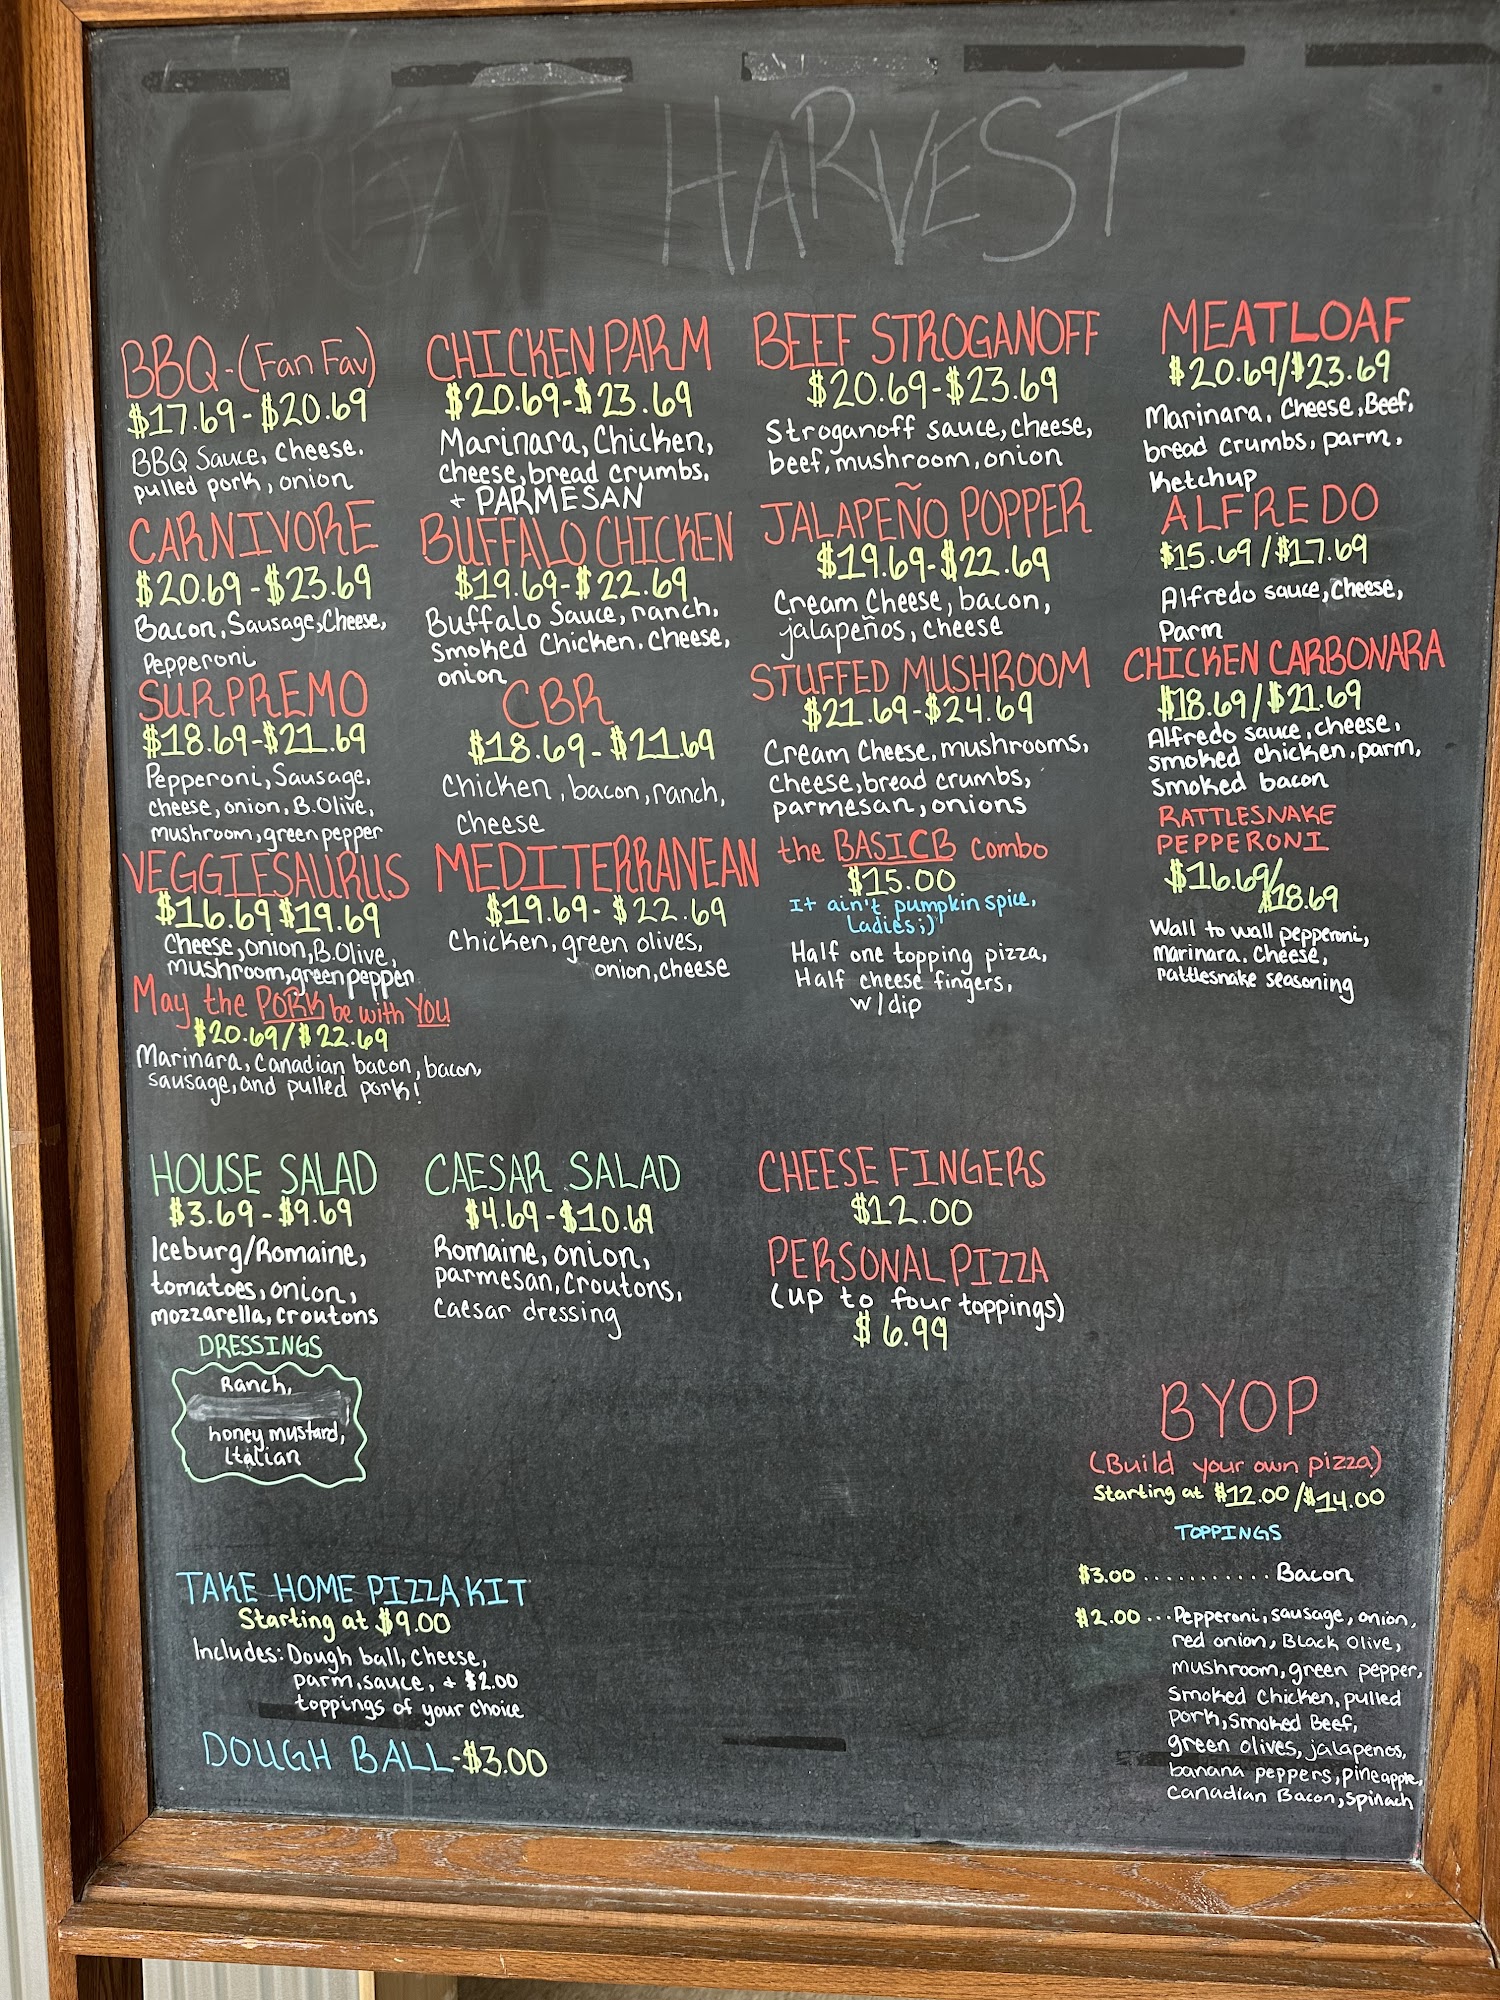 GREAT HARVEST
BBQ-(Fan Fav)
$17.69-$20.69
BBQ Sauce, Cheese.
pulled pork, onion
CARNIVORE
$20.69-$23.69
Bacon, Sausage, Cheese,
Pepperoni
SURPREMO
$18.69-$21.69
Pepperoni, Sausage,
cheese, onion, B.Olive,
mushroom, green pepper
VEGGIESAURUS
$16.69 $19.69
Cheese, onion, B.Olive,
mushroom, green pepper
May the PORK be with YOU!
$20.69/$22.69
Marinara, Canadian bacon, bacon,
sausage, and pulled pork!
CHICKEN PARM
$20.69-$23.69
Marinara, Chicken,
cheese, bread crumbs.
+ PARMESAN
BUFFALO CHICKEN
$19.69-$22.69
Buffalo Sauce, ranch,
Smoked Chicken, Cheese,
onion
CBR
$18.69-$21.69
Chicken, bacon, ranch,
cheese
MEDITERRANEAN
$19.69-$22.69
Chicken, green olives,
onion, cheese
BEEF STROGANOFF
$20.69-$23.69
Stroganoff sauce, cheese,
beef, mushroom, onion
JALAPEÑO POPPER
$19.69-$22.69
Cream Cheese, bacon,
jalapeños, cheese
STUFFED MUSHROOM
$21.69-$24.69
Cream Cheese, mushrooms,
Cheese, bread crumbs,
parmesan, onions
the BASICB combo
$15.00
It ain't pumpkin spice,
Ladies;)
Half one topping pizza,
Half cheese fingers,
w/dip
MEATLOAF
$20.69/$23.69
Marinara, Cheese, Beef,
bread crumbs, parm,
Ketchup
ALFREDO
$15.69/$17.69
Alfredo sauce, Cheese,
Parm
CHICKEN CARBONARA
$18.69/$21.69
Alfredo sauce, cheese,
smoked chicken, parm,
Smoked bacon
RATTLESNAKE
PEPPERONI
$16.69/
$18.69
Wall to wall pepperoni,
Marinara, Cheese,
rattlesnake seasoning
HOUSE SALAD
$3.69-$9.69
Iceburg/Romaine,
tomatoes, onion,
mozzarella, croutons
DRESSINGS
Ranch,
honey mustard,
Italian
CAESAR SALAD
$4.69-$10.69
Romaine, onion,
parmesan, croutons,
Caesar dressing
CHEESE FINGERS
$12.00
PERSONAL PIZZA
(up to four toppings)
$6.99
BYOP
(Build your own pizza)
Starting at $12.00/$14.00
TOPPINGS
$3.00 ........... Bacon
$2.00 ... Pepperoni, sausage, onion,
red onion, Black Olive,
mushroom, green pepper,
Smoked Chicken, pulled
pork, Smoked Beef,
green olives, jalapenos,
banana peppers, pineapple,
Canadian Bacon, spinach
TAKE HOME PIZZA KIT
Starting at $9.00
Includes: Dough ball, cheese,
parm, sauce, + $2.00
toppings of your choice
DOUGH BALL-$3.00